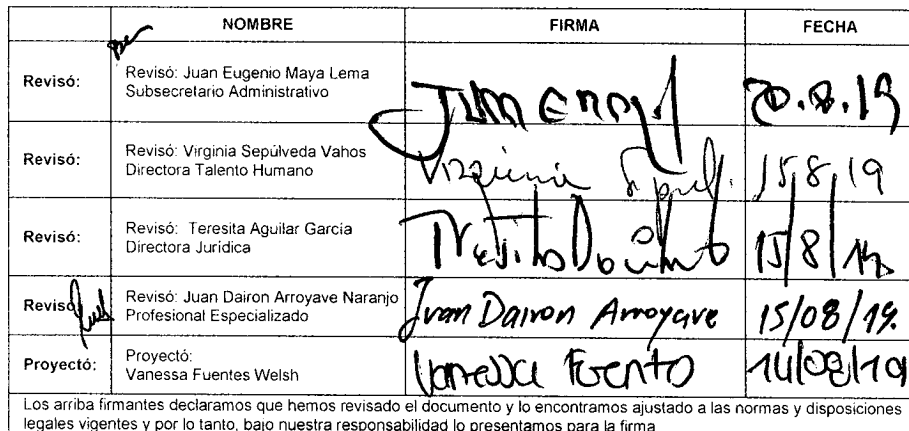 NOMBRE FIRMA FECHA
Revisó: Revisó: Juan Eugenio Maya Lema
Subsecretario Administrativo
20.8.19
Revisó: Revisó: Virginia Sepúlveda Vahos
Directora Talento Humano
Virginia 15,8,19
Revisó: Revisó: Teresita Aguilar García
Directora Jurídica
15/8/19
Revisó: Revisó: Juan Dairon Arroyave Naranjo
Profesional Especializado
Juan Dairon Arroyave 15/08/19.
Proyectó: Proyectó:
Vanessa Fuentes Welsh
Vanessa Fuentes 14/08/19
Los arriba firmantes declaramos que hemos revisado el documento y lo encontramos ajustado a las normas y disposiciones
legales vigentes y por lo tanto, bajo nuestra responsabilidad lo presentamos para la firma